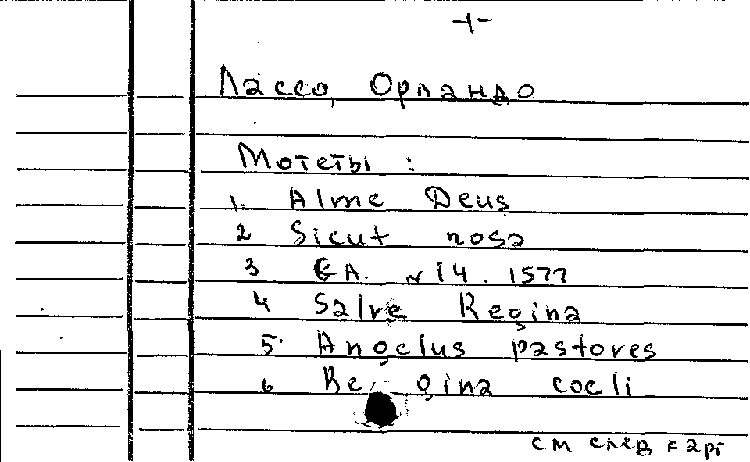 -1-
Лассо, Орландо
Мотеты :
1. Alme Deus
2 Sicut rosa
3 EA. N 14. 1577
4 Salve Regina
5. Angelus pastores
6 Regina coeli
см след карт